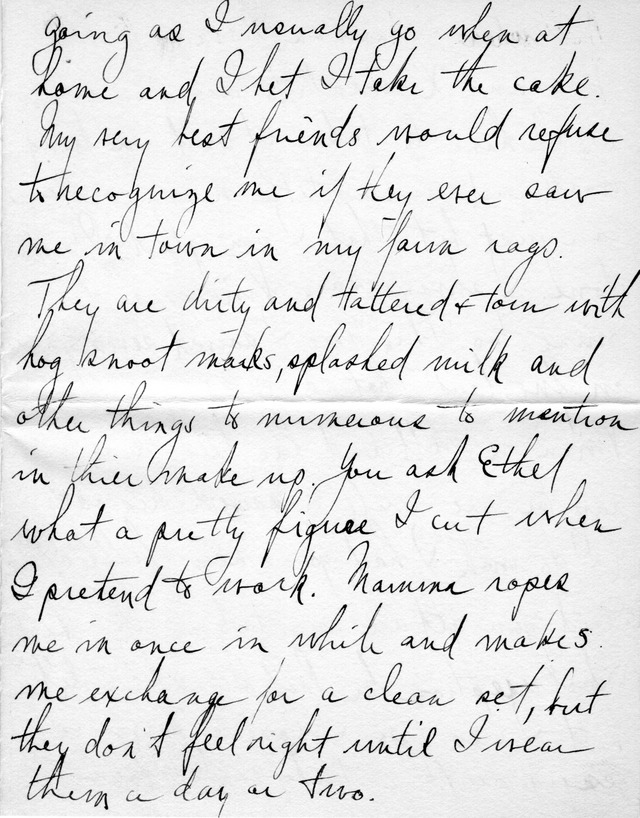 going as I usually go when at
home and I bet I take the cake.
My very best friends would refuse
to recognize me if they ever saw
me in town in my farm rags.
They are dirty and tattered & torn with
hog snoot marks, splashed milk and
other things to numerous to mention
in thier make up. You ask Ethel
what a pretty figure I cut when
I pretend to work. Mamma ropes
me in once in while and makes
me exchange for a clean set, but
they don't feel right until I wear
them a day or two.